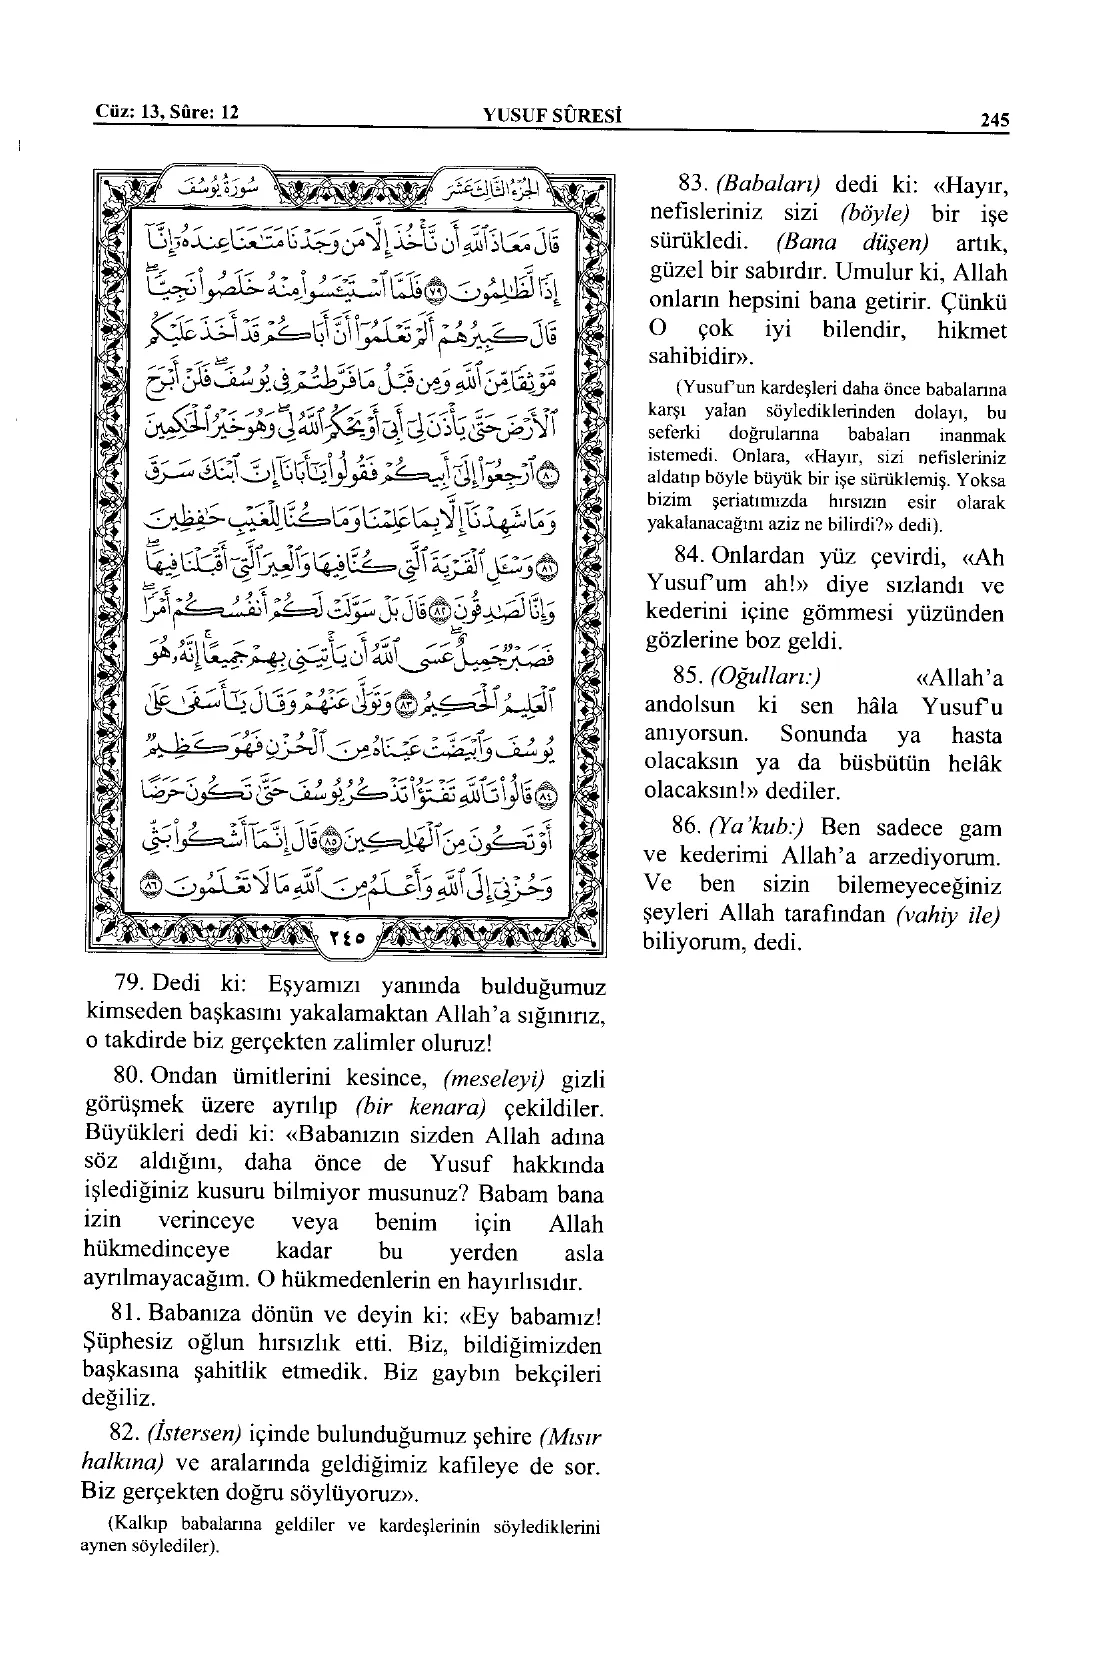 Cüz: 13, Sûre: 12 YUSUF SÛRESİ 245
سُورَةُ يُوسُفَ الجُزْءُ الثَّالِثَ عَشَرَ
قَالَ مَعَاذَ ٱللَّهِ أَن نَّأْخُذَ إِلَّا مَن وَجَدْنَا مَتَٰعَنَا عِندَهُۥٓ إِنَّآ
إِذًا لَّظَٰلِمُونَ ٧٩ فَلَمَّا ٱسْتَيْـَٔسُوا۟ مِنْهُ خَلَصُوا۟ نَجِيًّا ۖ
قَالَ كَبِيرُهُمْ أَلَمْ تَعْلَمُوٓا۟ أَنَّ أَبَاكُمْ قَدْ أَخَذَ عَلَيْكُم
مَّوْثِقًا مِّنَ ٱللَّهِ وَمِن قَبْلُ مَا فَرَّطتُمْ فِى يُوسُفَ ۖ فَلَنْ أَبْرَحَ
ٱلْأَرْضَ حَتَّىٰ يَأْذَنَ لِىٓ أَبِىٓ أَوْ يَحْكُمَ ٱللَّهُ لِى ۖ وَهُوَ خَيْرُ ٱلْحَٰكِمِينَ
٨٠ ٱرْجِعُوٓا۟ إِلَىٰٓ أَبِيكُمْ فَقُولُوا۟ يَٰٓأَبَانَآ إِنَّ ٱبْنَكَ سَرَقَ
وَمَا شَهِدْنَآ إِلَّا بِمَا عَلِمْنَا وَمَا كُنَّا لِلْغَيْبِ حَٰفِظِينَ
٨١ وَسْـَٔلِ ٱلْقَرْيَةَ ٱلَّتِى كُنَّا فِيهَا وَٱلْعِيرَ ٱلَّتِىٓ أَقْبَلْنَا فِيهَا ۖ
وَإِنَّا لَصَٰدِقُونَ ٨٢ قَالَ بَلْ سَوَّلَتْ لَكُمْ أَنفُسُكُمْ أَمْرًا ۖ
فَصَبْرٌ جَمِيلٌ ۖ عَسَى ٱللَّهُ أَن يَأْتِيَنِى بِهِمْ جَمِيعًا ۚ إِنَّهُۥ هُوَ
ٱلْعَلِيمُ ٱلْحَكِيمُ ٨٣ وَتَوَلَّىٰ عَنْهُمْ وَقَالَ يَٰٓأَسَفَىٰ عَلَىٰ
يُوسُفَ وَٱبْيَضَّتْ عَيْنَاهُ مِنَ ٱلْحُزْنِ فَهُوَ كَظِيمٌ
٨٤ قَالُوا۟ تَٱللَّهِ تَفْتَؤُا۟ تَذْكُرُ يُوسُفَ حَتَّىٰ تَكُونَ حَرَضًا
أَوْ تَكُونَ مِنَ ٱلْهَٰلِكِينَ ٨٥ قَالَ إِنَّمَآ أَشْكُوا۟ بَثِّى
وَحُزْنِىٓ إِلَى ٱللَّهِ وَأَعْلَمُ مِنَ ٱللَّهِ مَا لَا تَعْلَمُونَ ٨٦
٢٤٥
79. Dedi ki: Eşyamızı yanında bulduğumuz
kimseden başkasını yakalamaktan Allah’a sığınırız,
o takdirde biz gerçekten zalimler oluruz!
80. Ondan ümitlerini kesince, (meseleyi) gizli
görüşmek üzere ayrılıp (bir kenara) çekildiler.
Büyükleri dedi ki: «Babanızın sizden Allah adına
söz aldığını, daha önce de Yusuf hakkında
işlediğiniz kusuru bilmiyor musunuz? Babam bana
izin verinceye veya benim için Allah
hükmedinceye kadar bu yerden asla
ayrılmayacağım. O hükmedenlerin en hayırlısıdır.
81. Babanıza dönün ve deyin ki: «Ey babamız!
Şüphesiz oğlun hırsızlık etti. Biz, bildiğimizden
başkasına şahitlik etmedik. Biz gaybın bekçileri
değiliz.
82. (İstersen) içinde bulunduğumuz şehire (Mısır
halkına) ve aralarında geldiğimiz kafileye de sor.
Biz gerçekten doğru söylüyoruz».
(Kalkıp babalarına geldiler ve kardeşlerinin söylediklerini
aynen söylediler).
83. (Babaları) dedi ki: «Hayır,
nefisleriniz sizi (böyle) bir işe
sürükledi. (Bana düşen) artık,
güzel bir sabırdır. Umulur ki, Allah
onların hepsini bana getirir. Çünkü
O çok iyi bilendir, hikmet
sahibidir».
(Yusuf'un kardeşleri daha önce babalarına
karşı yalan söylediklerinden dolayı, bu
seferki doğrularına babaları inanmak
istemedi. Onlara, «Hayır, sizi nefisleriniz
aldatıp böyle büyük bir işe sürüklemiş. Yoksa
bizim şeriatımızda hırsızın esir olarak
yakalanacağını aziz ne bilirdi?» dedi).
84. Onlardan yüz çevirdi, «Ah
Yusuf'um ah!» diye sızlandı ve
kederini içine gömmesi yüzünden
gözlerine boz geldi.
85. (Oğulları:) «Allah’a
andolsun ki sen hâla Yusuf'u
anıyorsun. Sonunda ya hasta
olacaksın ya da büsbütün helâk
olacaksın!» dediler.
86. (Ya’kub:) Ben sadece gam
ve kederimi Allah’a arzediyorum.
Ve ben sizin bilemeyeceğiniz
şeyleri Allah tarafından (vahiy ile)
biliyorum, dedi.